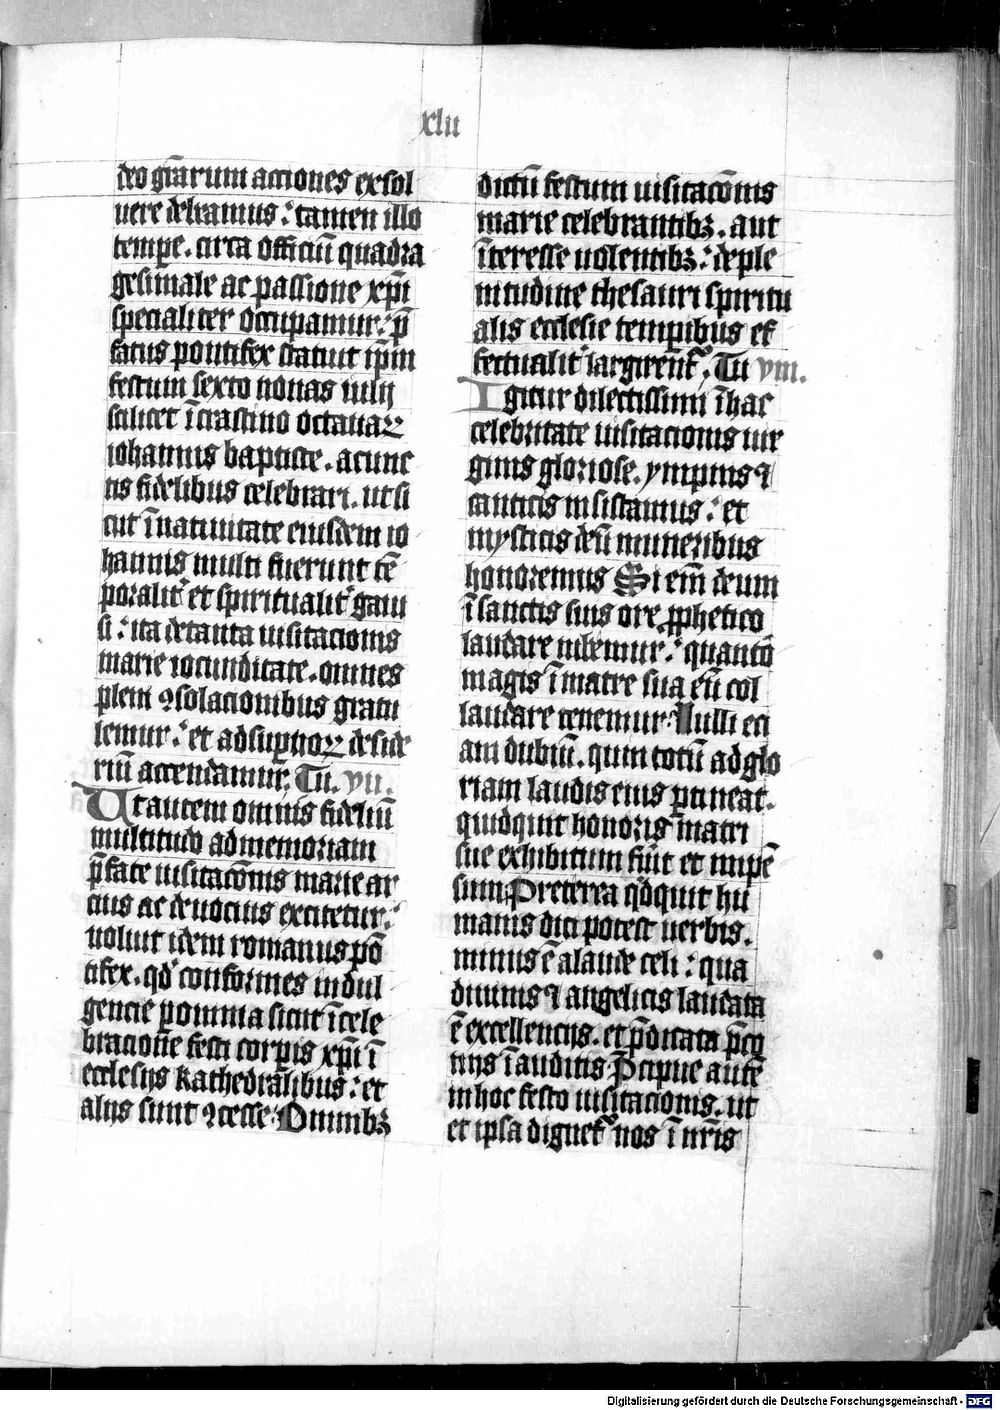 xlii
deo gr̄arum acciones exsol
uere debeamus : tamen illo
tempe . circa officiū quadra
gesimale ac passione xp̄i
specialiter occupamur : p̄
fatus pontifex statuit ip̄m
festum sexto nonas iulij
scilicet ī crastino octauaꝝ
iohannis baptiste . a cunc
tis fidelibus celebrari . ut si
cut ī natiuitate eiusdem io
hannis multi fuerunt tē
poralit᾽ et spiritualit᾽ gaui
si : ita de tanta uisitacionis
marie iocunditate . omnes
pleni ꝯsolacionibus gratu
lemur : et ad sup̲noꝝ deside
riū accendamur . Tu . vii .
Ut autem omnis fideliū
multitudo ad memoriam
p̄fate uisitacōnis marie ar
cius ac deuocius excitetur :
uoluit idem romanus pō
tifex . qd̄ conformes indul
gencie ꝑ omnia sicut ī cele
bracione festi corpis xp̄i ī
ecclesijs kathedralibus : et
alijs sunt ꝯcesse . Omnibꝫ
dictū festum uisitacōnis
marie celebrantibꝫ . aut
īteresse uolentibꝫ : de ple
nitudine thesauri spiritu
alis ecclesie tempibus ef
fectualit᾽ largirent᾽ . Tu viii .
Igitur dilectissimi ī hac
celebritate uisitacionis uir
ginis gloriose . ympnis ⁊
canticis insistamus : et
mysticis deū muneribus
honoremus Si em̄ deum
ī sanctis suis ore ꝓphetico
laudare iubemur : quanto
magis ī matre sua eū col
laudare tenemur . Nulli eci
am dubiū . quin totū ad glo
riam laudis eius ꝑtineat .
quidquit honoris matri
sue exhibitum fūit et impē
sum Preterea qd̄quit hu
manis dici potest uerbis .
minus ē a laude celi : qua
diuinis ⁊ angelicis laudata
ē excellencijs . et p̄dicata p̄co
nijs ī auditis . P̄cipue autē
in hoc festo uisitacionis . ut
et ipsa dignet᾽ nos ī nr̄is
Digitalisierung gefördert durch die Deutsche Forschungsgemeinschaft - DFG